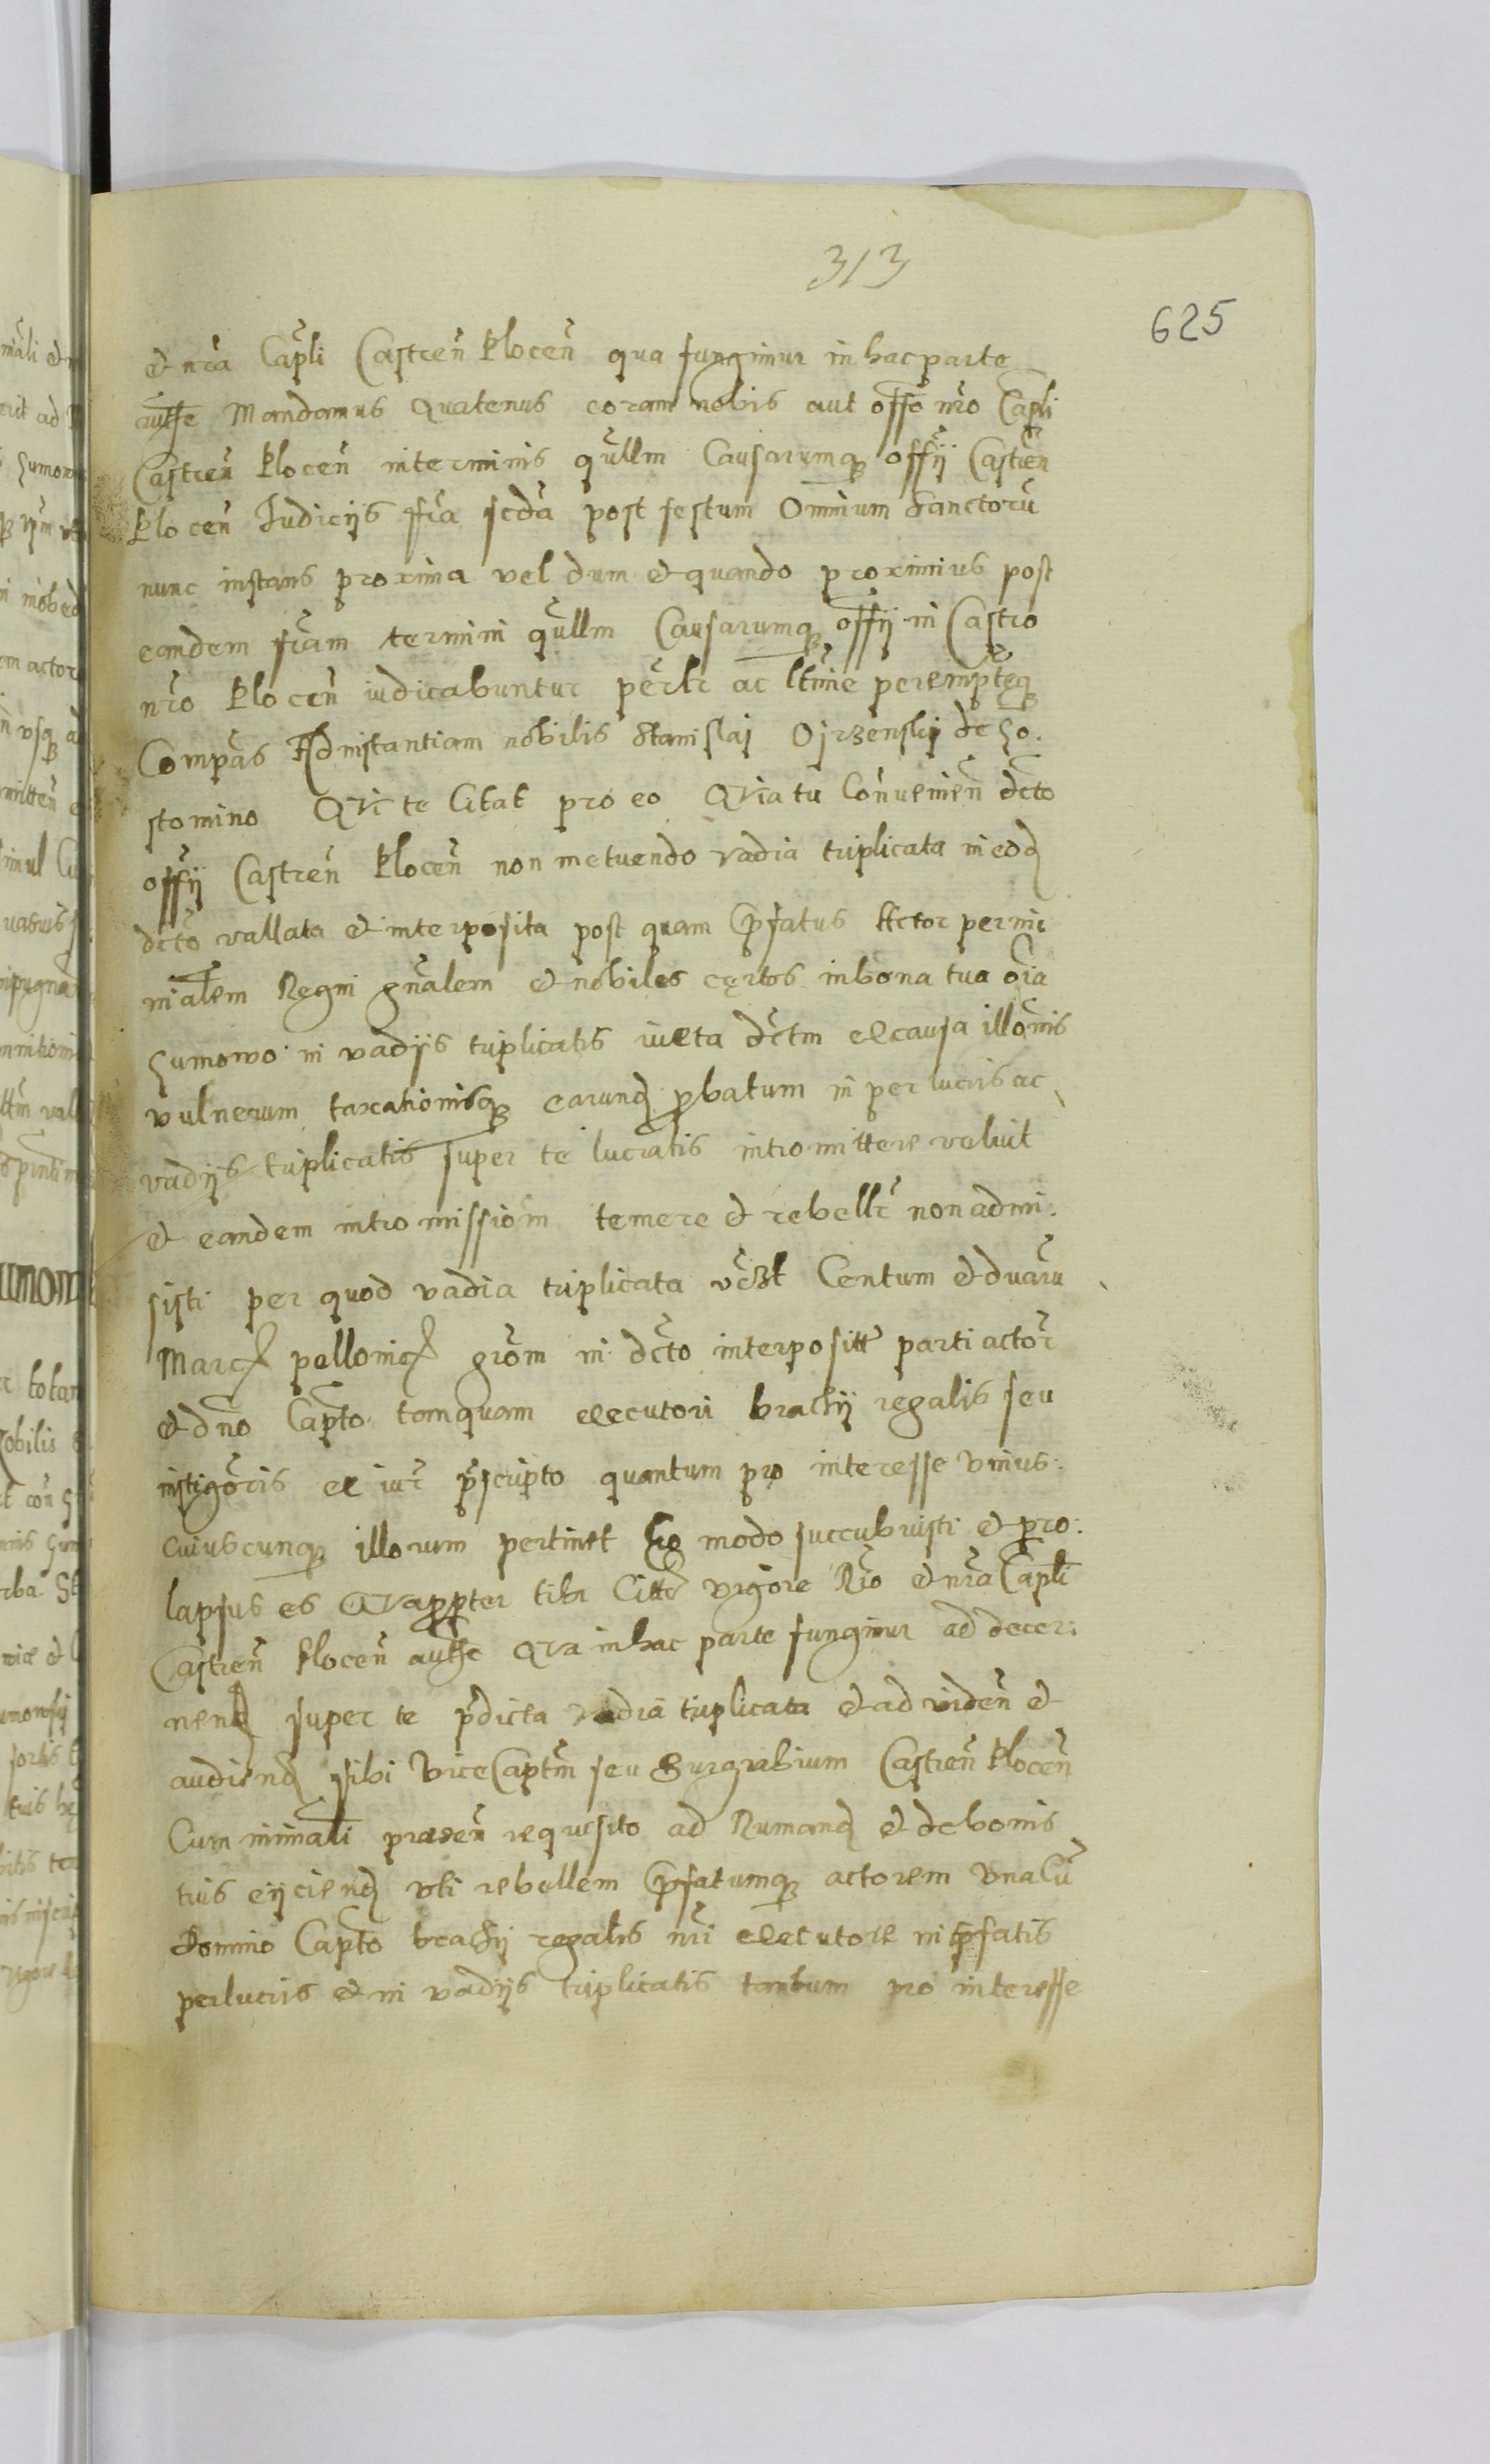 313
625
et nrã Capli Castreñ Plocen̄ qua fungimur in hac parte
autthe Mandamus Quatenus coram nobis aut offo nrõ Capli
Castreñ Plocen̄ in terminis qũllm Causarumq offȳ Castreñ
Plocen̄ Iudicijs fria scda post festum Omnium Sanctorũ
nunc instans proxima vel dum et quando proximius post
eandem friam termini qũllm Causarumq offȳ in Castro
nrõ Plocen̄ iudicabuntur perlr ac ltime peremptęq
Compãs Ad instantiam nobilis Stanislaj Ojrzenskij de Go.
stomino Qui te Citat pro eo Quia tu Conveniens dcto
offȳ Castreñ Plocen̄ non metuendo vadia triplicata in eod
dcto vallata et interposita post quam Prfatus Actor per mi
nialem Regni gñalem et nobiles certos in bona tua
Gumowo in vadijs triplicatis iuxta dctm ex causa illõnis
vulnerum taxationisq earund probatum in per lucris ac
vadijs triplicatis super te lucratis intromittere voluit
et eandem intromissiõm temere et rebellr non admi:
sisti per quod vadia triplicata vczt Centum et duaru
Marc pollonic grõm in dcto interposittᵃ parti actor
et dño Capto tamquam executori brachij regalis seu
instigoris ex iur prscripto quantum pro interesse Vnius
cuiuscunq illorum pertinet modo succubuisti et pro:
lapsus es Quapropter tibi vigore Nrõ et nrã Capli
Castreñ Plocen̄ autthe Qua in hac parte fungimur ad decer:
nend super te prdicta vadia triplicata et ad videñ et
audiend sibi ViceCaptm seu Burgrabium Castreñ Plocen̄
Cum miniali praesen̄ requisito ad Rumand et de bonis
tuis eijciend vti rebellem Prfatumq actorem vna Cũ
Domino Capto brachij regalis nri executore in prfatis
perlucris et in vadijs triplicatis tantum pro interesse